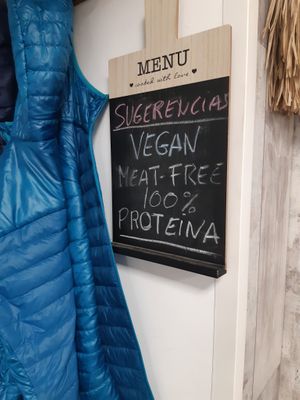 MENU
cooked with love
SUGERENCIAS
VEGAN
MEAT-FREE
100%
PROTEINA